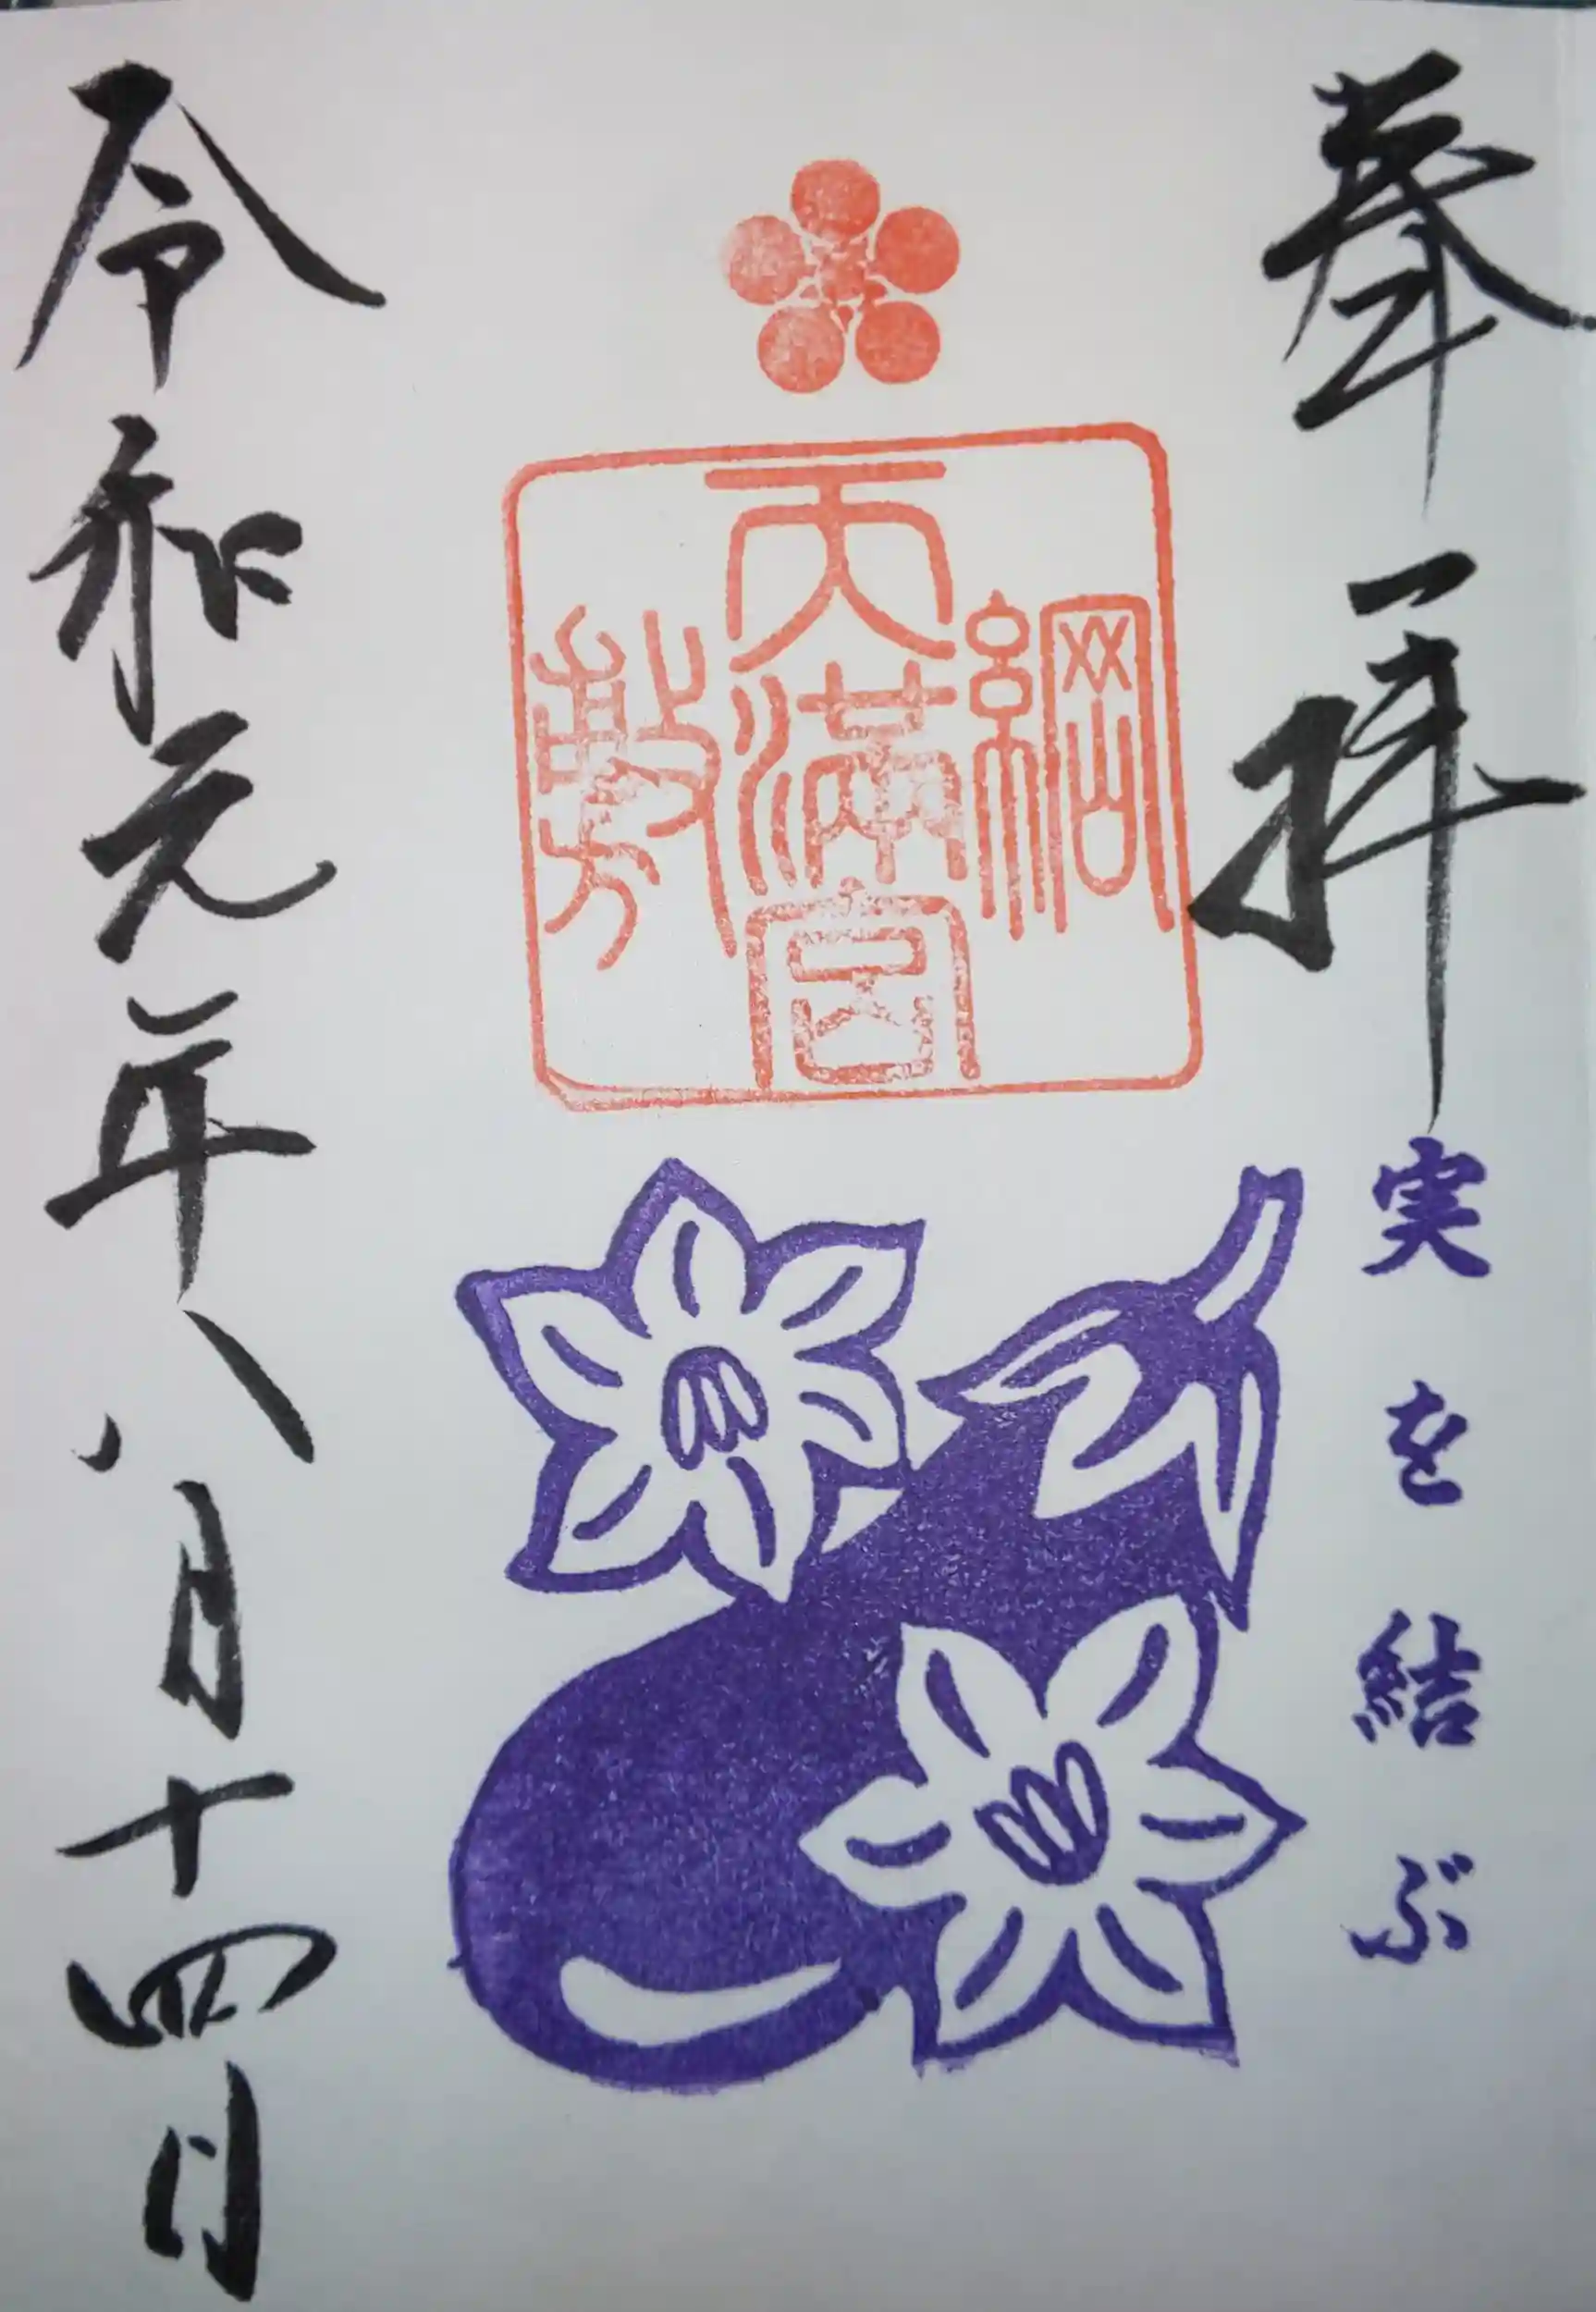 奉拝
実を結ぶ
綱敷
天満宮
令和元年八月十四日